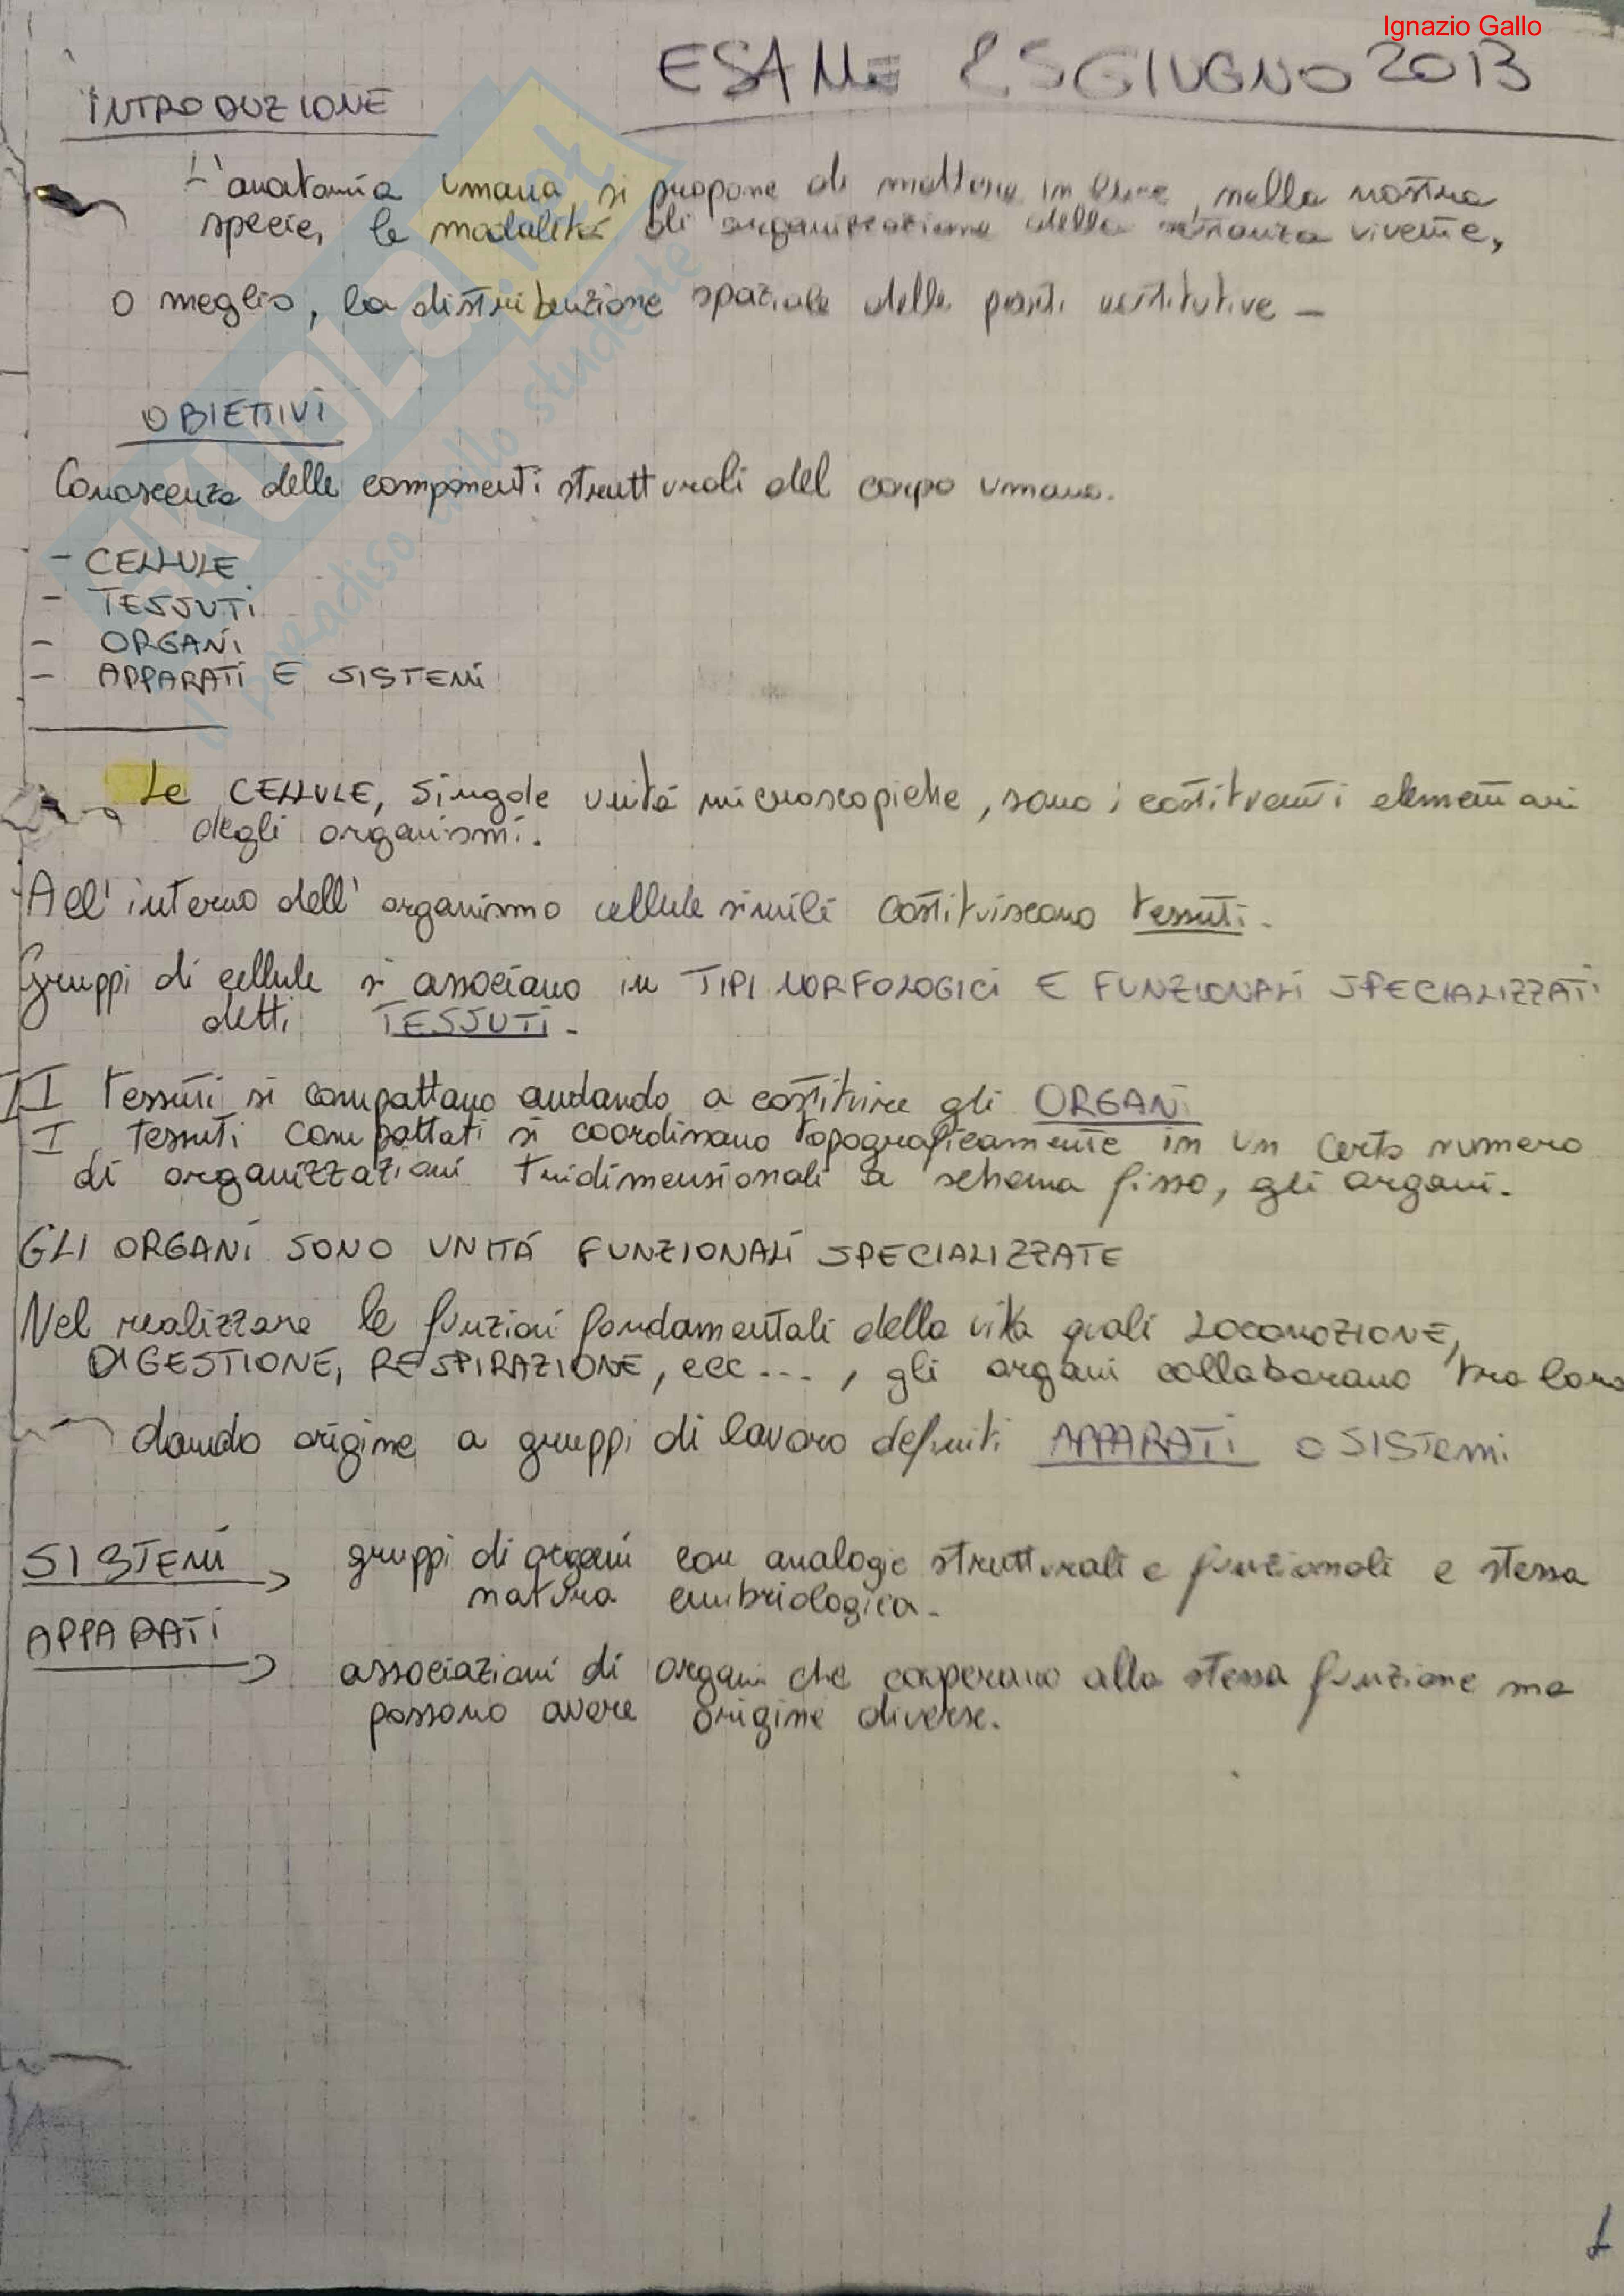 Ignazio Gallo
ESAME 25 GIUGNO 2013
INTRODUZIONE
L'anatomia umana si propone di mettere in luce, nella nostra
specie, le modalità di organizzazione della sostanza vivente,
o meglio, la distribuzione spaziale delle parti costitutive -
OBIETTIVI
Conoscenza delle componenti strutturali del corpo umano.
- CELLULE
- TESSUTI
- ORGANI
- APPARATI E SISTEMI
Le CELLULE, singole unità microscopiche, sono i costituenti elementari
degli organismi.
All'interno dell'organismo cellule simili costituiscono tessuti.
Gruppi di cellule si associano in TIPI MORFOLOGICI E FUNZIONALI SPECIALIZZATI
detti TESSUTI -
I tessuti si compattano andando a costituire gli ORGANI
I tessuti compattati si coordinano topograficamente in un certo numero
di organizzazioni tridimensionali a schema fisso, gli organi.
GLI ORGANI SONO UNITÁ FUNZIONALI SPECIALIZZATE
Nel realizzare le funzioni fondamentali della vita quali LOCOMOZIONE,
DIGESTIONE, RESPIRAZIONE, ecc..., gli organi collaborano tra loro
dando origine a gruppi di lavoro definiti APPARATI o SISTEMI
SISTEMI → gruppi di organi con analogie strutturali e funzionali e stessa
natura embriologica.
APPARATI → associazioni di organi che cooperano alla stessa funzione ma
possono avere origine diverse.
SKUOLA.net
il paradiso dello studente
1